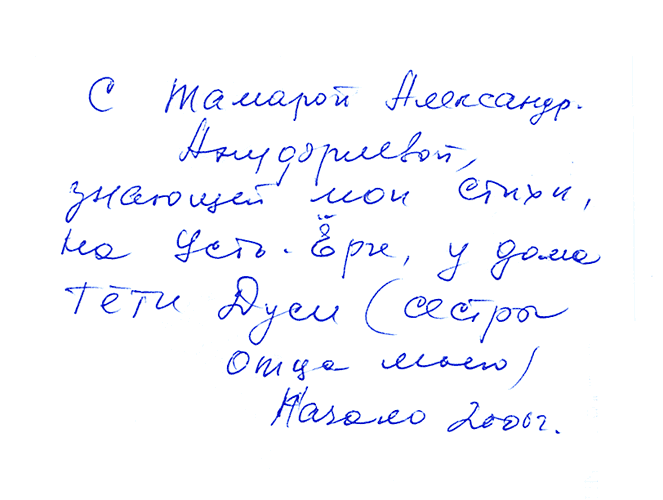 С Тамарой Александр.
знающей мои стихи,
на Усть-Ёрге, у дома
тёти Дуси (сестры
отца моего)
Начало 2000г.